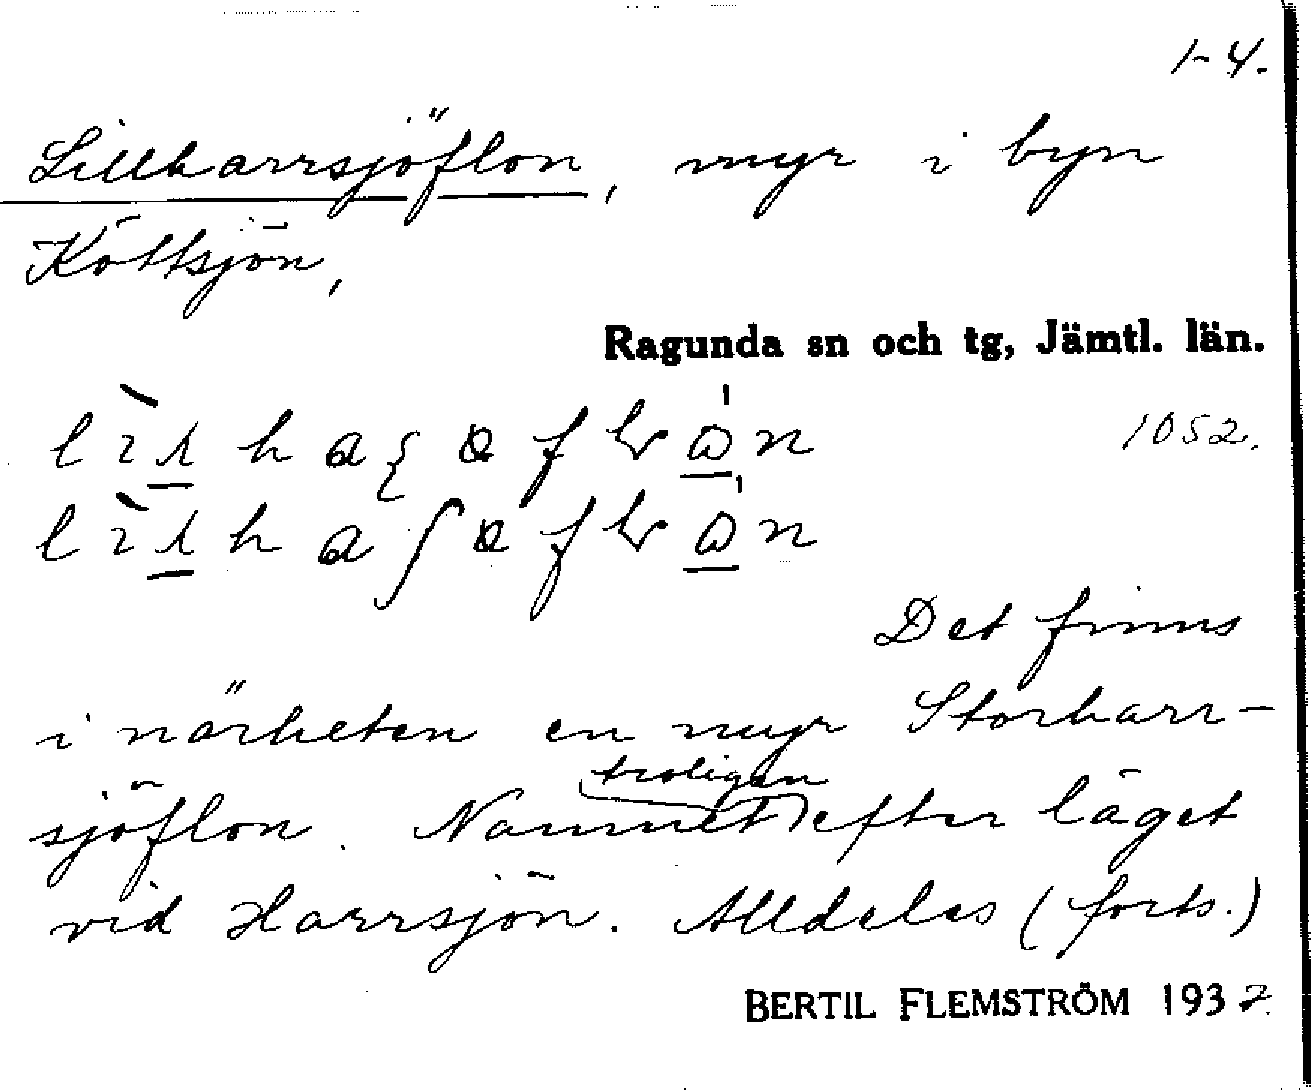 1-4.
Lillharrsjöflon, myr i byn
Köttsjön,
Ragunda sn och tg, Jämtl. län.
1052.
Det finns
i närheten en myr Storharr-
sjöflon. Namnet troligen efter läget
vid Harrsjön. Alldeles (forts.)
BERTIL FLEMSTRÖM 1932